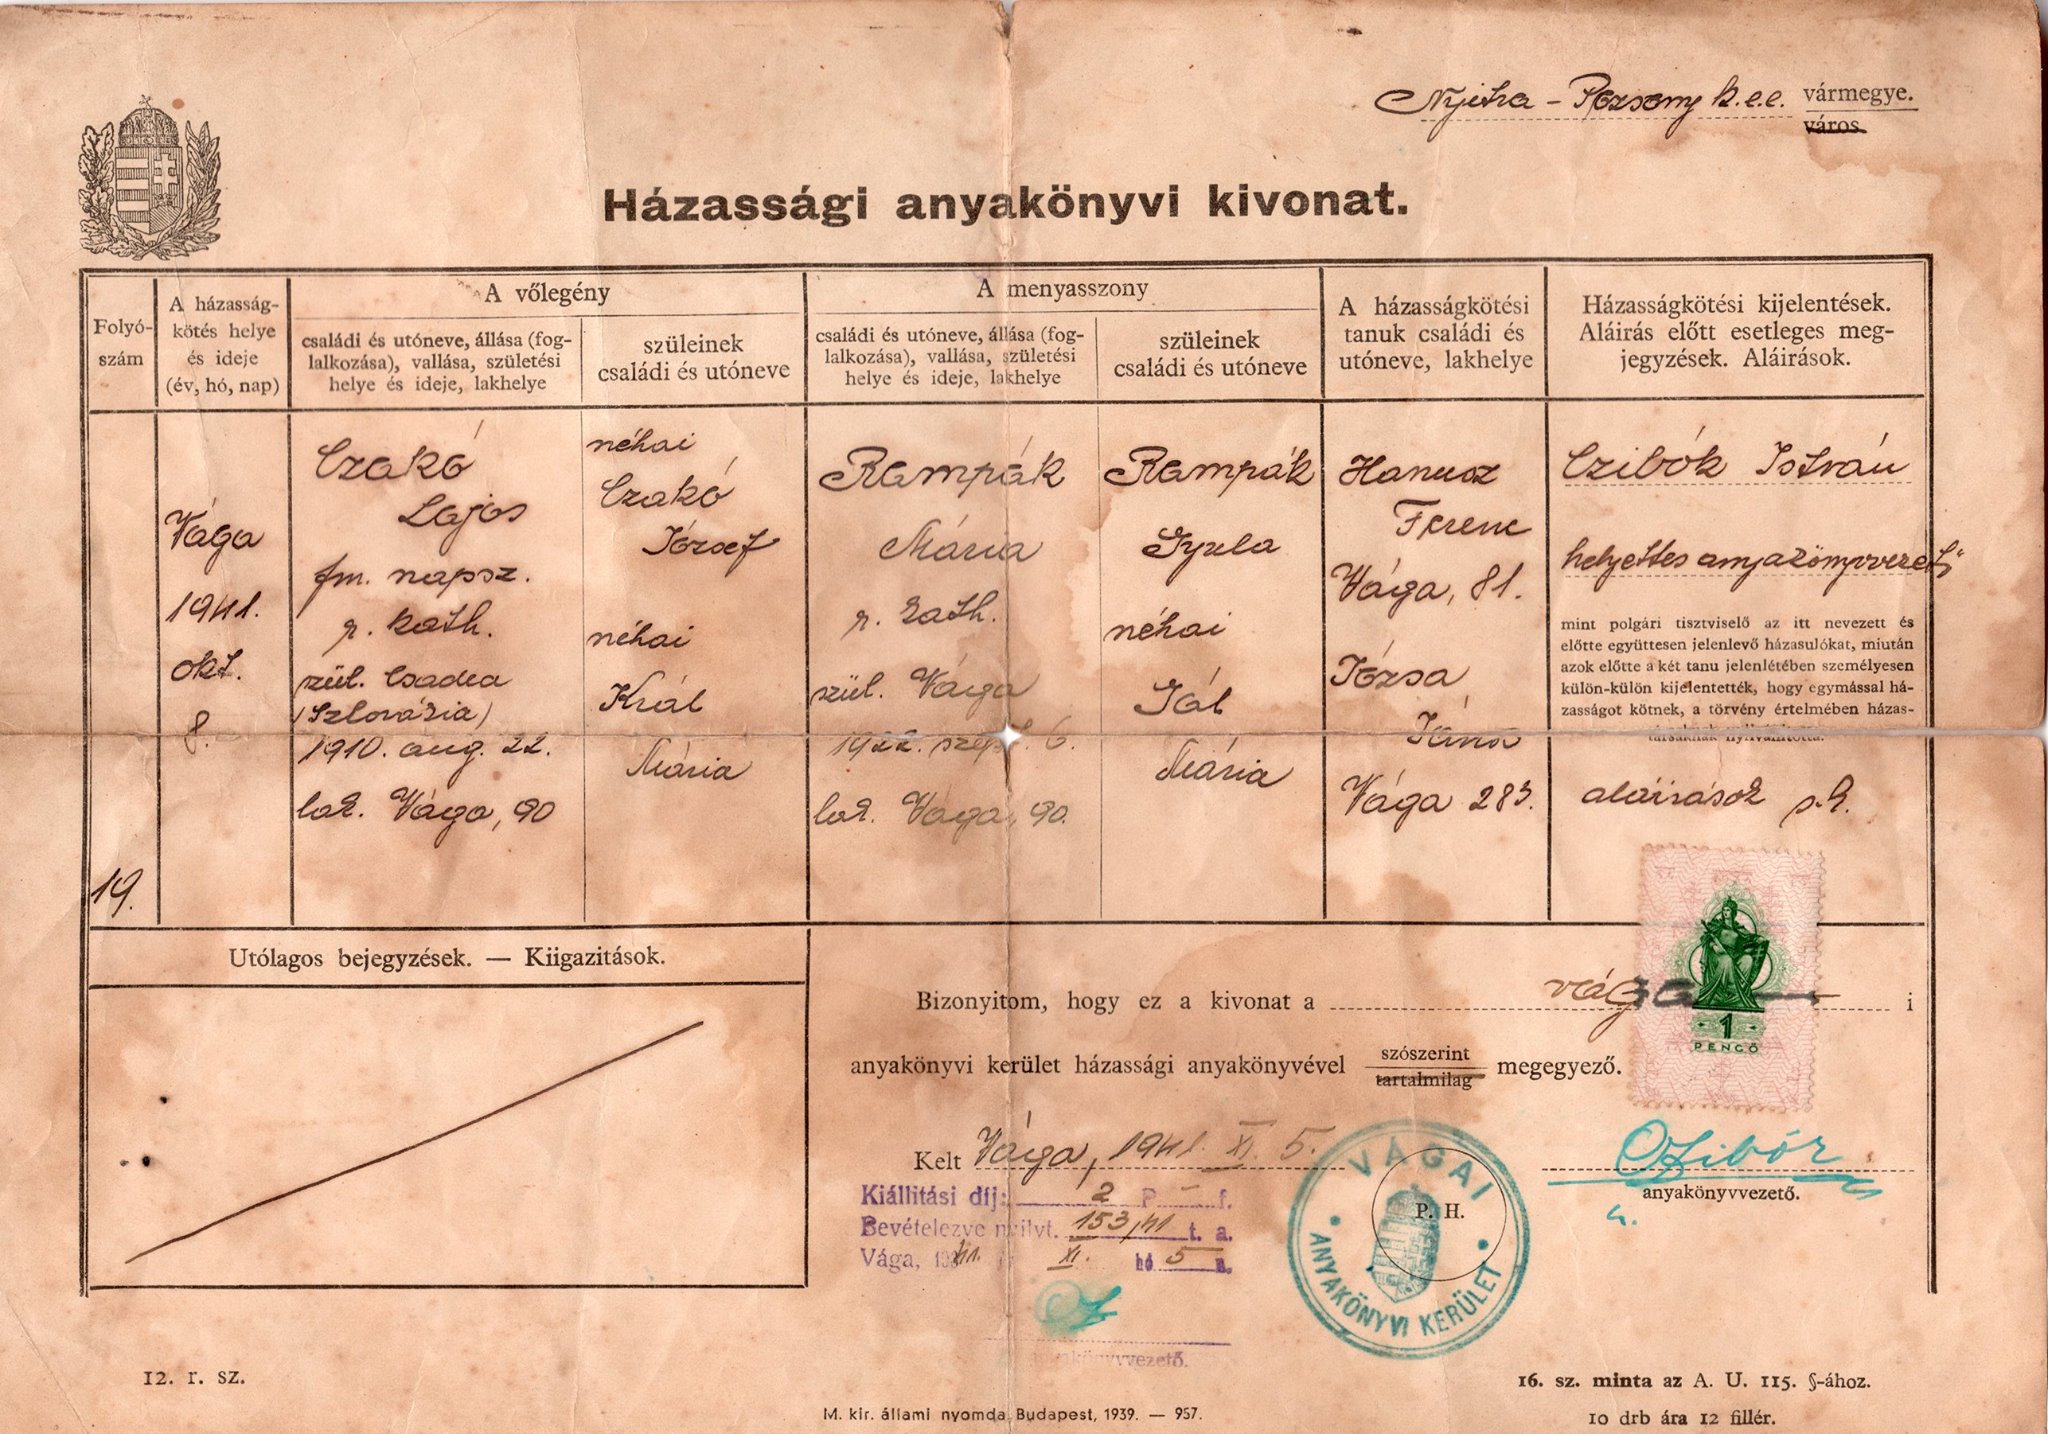 Nyitra - Pozsony k.e.e. vármegye.
város
Házassági anyakönyvi kivonat.
Folyó-
szám
A házasság-
kötés helye
és ideje
(év, hó, nap)
A vőlegény
családi és utóneve, állása (fog-
lalkozása), vallása, születési
helye és ideje, lakhelye
szüleinek
családi és utóneve
A menyasszony
családi és utóneve, állása (fog-
lalkozása), vallása, születési
helye és ideje, lakhelye
szüleinek
családi és utóneve
A házasságkötési
tanuk családi és
utóneve, lakhelye
Házasságkötési kijelentések.
Aláirás előtt esetleges meg-
jegyzések. Aláirások.
19.
Vága
1941.
okt.
8.
Czakó
Lajos
fm. napsz.
r. kath.
szül. Csadca
(Szlovákia)
1910. aug. 22.
lak. Vága, 90
néhai
Czakó
József
néhai
Král
Mária
Rampák
Mária
r. kath.
szül. Vága
1922. szept. 6.
lak. Vága, 90.
Rampák
Gyula
néhai
Gál
Mária
Hanusz
Ferenc
Vága, 81.
Józsa
János
Vága 283.
Czibók István
helyettes anyakönyvvezető
mint polgári tisztviselő az itt nevezett és
előtte együttesen jelenlevő házasulókat, miután
azok előtte a két tanu jelenlétében személyesen
külön-külön kijelentették, hogy egymással há-
zasságot kötnek, a törvény értelmében házas-
társaknak nyilvánította.
aláirások s.k.
Utólagos bejegyzések. — Kiigazitások.
Bizonyitom, hogy ez a kivonat a vága i
anyakönyvi kerület házassági anyakönyvével szószerint megegyező.
tartalmilag
1
PENGŐ
Kelt Vága, 1941. XI. 5.
Czibók
anyakönyvvezető.
h.
Kiállitási dij: 2 P - f.
Bevételezve nyilvt. 153/41 t. a.
Vága, 1941. XI. hó 5 n.
anyakönyvvezető.
VÁGAI
ANYAKÖNYVI KERÜLET
P. H.
12. r. sz.
M. kir. állami nyomda, Budapest, 1939. — 957.
16. sz. minta az A. U. 115. §-ához.
10 drb ára 12 fillér.